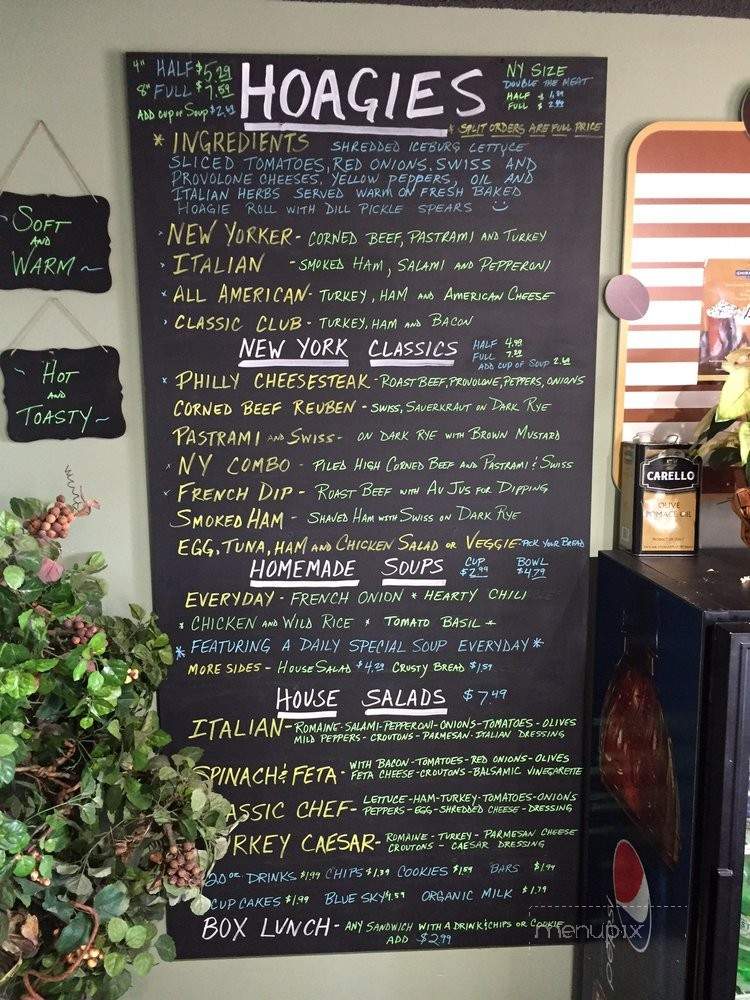 4" HALF $5.29
8" FULL $7.59
ADD CUP OF SOUP $2.49
HOAGIES
NY SIZE
DOUBLE THE MEAT
HALF $
FULL $
* SPLIT ORDERS ARE FULL PRICE
* INGREDIENTS SHREDDED ICEBURG LETTUCE
SLICED TOMATOES, RED ONIONS, SWISS AND
PROVOLONE CHEESES, YELLOW PEPPERS, OIL AND
ITALIAN HERBS SERVED WARM ON FRESH BAKED
HOAGIE ROLL WITH DILL PICKLE SPEARS
NEW YORKER - CORNED BEEF, PASTRAMI AND TURKEY
ITALIAN - SMOKED HAM, SALAMI AND PEPPERONI
ALL AMERICAN - TURKEY, HAM AND AMERICAN CHEESE
CLASSIC CLUB - TURKEY, HAM AND BACON
NEW YORK CLASSICS
HALF 4.99
FULL
ADD CUP OF SOUP
PHILLY CHEESESTEAK - ROAST BEEF, PROVOLONE, PEPPERS, ONIONS
CORNED BEEF REUBEN - SWISS, SAUERKRAUT ON DARK RYE
PASTRAMI AND SWISS - ON DARK RYE WITH BROWN MUSTARD
NY COMBO - PILED HIGH CORNED BEEF AND PASTRAMI & SWISS
FRENCH DIP - ROAST BEEF WITH AU JUS FOR DIPPING
SMOKED HAM - SHAVED HAM WITH SWISS ON DARK RYE
EGG, TUNA, HAM AND CHICKEN SALAD OR VEGGIE - PICK YOUR BREAD
HOMEMADE SOUPS
CUP $2.99
BOWL $4.79
EVERYDAY - FRENCH ONION * HEARTY CHILI
* CHICKEN AND WILD RICE * TOMATO BASIL *
* FEATURING A DAILY SPECIAL SOUP EVERYDAY *
MORE SIDES - HOUSE SALAD $4.29 CRUSTY BREAD $1.59
HOUSE SALADS $7.49
ITALIAN - ROMAINE - SALAMI - PEPPERONI - ONIONS - TOMATOES - OLIVES
MILD PEPPERS - CROUTONS - PARMESAN - ITALIAN DRESSING
SPINACH & FETA - WITH BACON - TOMATOES - RED ONIONS - OLIVES
FETA CHEESE - CROUTONS - BALSAMIC VINEGARETTE
ASSIC CHEF - LETTUCE - HAM - TURKEY - TOMATOES - ONIONS
PEPPERS - EGG - SHREDDED CHEESE - DRESSING
RKEY CAESAR - ROMAINE - TURKEY - PARMESAN CHEESE
CROUTONS - CAESAR DRESSING
20 OZ. DRINKS $1.99 CHIPS $1.39 COOKIES $1.59 BARS $1.99
CUP CAKES $1.99 BLUE SKY ORGANIC MILK $1.79
BOX LUNCH - ANY SANDWICH WITH A DRINK & CHIPS OR COOKIE
ADD $2.99
SOFT
AND
WARM ~
HOT
AND
TOASTY ~
CARELLO
OLIVE
POMACE OIL
pepsi
menupix